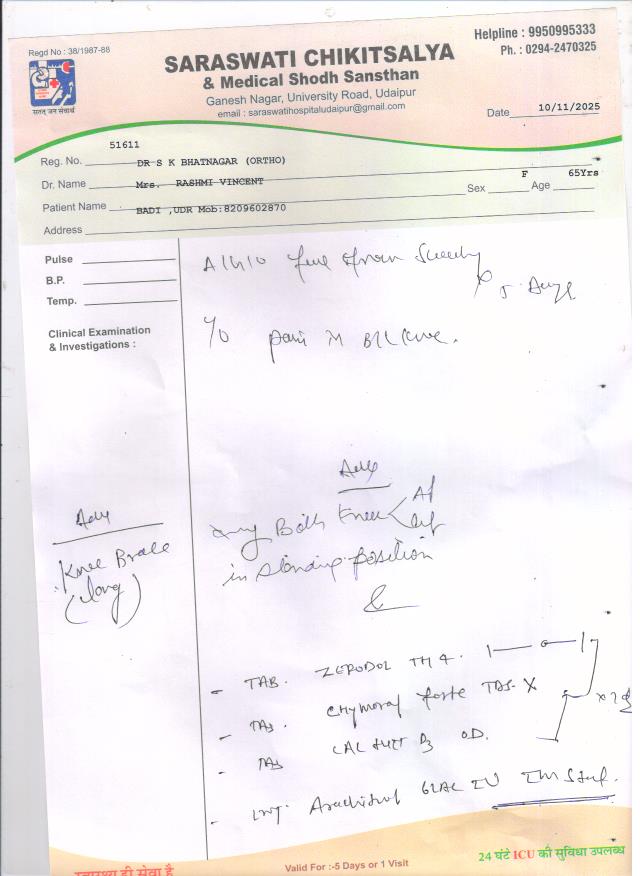 Regd No : 38/1987-88
Helpline : 9950995333
Ph. : 0294-2470325
SARASWATI CHIKITSALYA
& Medical Shodh Sansthan
Ganesh Nagar, University Road, Udaipur
email : saraswatihospitaludaipur@gmail.com
सतत् जन सेवार्थ
Date 10/11/2025
51611
Reg. No. DR S K BHATNAGAR (ORTHO)
Dr. Name Mrs. RASHMI VINCENT Sex F Age 65Yrs
Patient Name BADI ,UDR Mob:8209602870
Address
Pulse
B.P.
Temp.
Clinical Examination
& Investigations :
A/H/O
5 Days
pain
Adv
Both Knee AP
in standing position
Adv
Knee Brace
(long)
- TAB. ZERODOL TH 4. 1 — 0 — 1
- TAB. CHYMORAL forte TDS X
- TAB D3 O.D.
- INJ. Arachitol 6 LAC IU IM Stat.
स्वास्थ्य ही सेवा है
Valid For :-5 Days or 1 Visit
24 घंटे ICU की सुविधा उपलब्ध